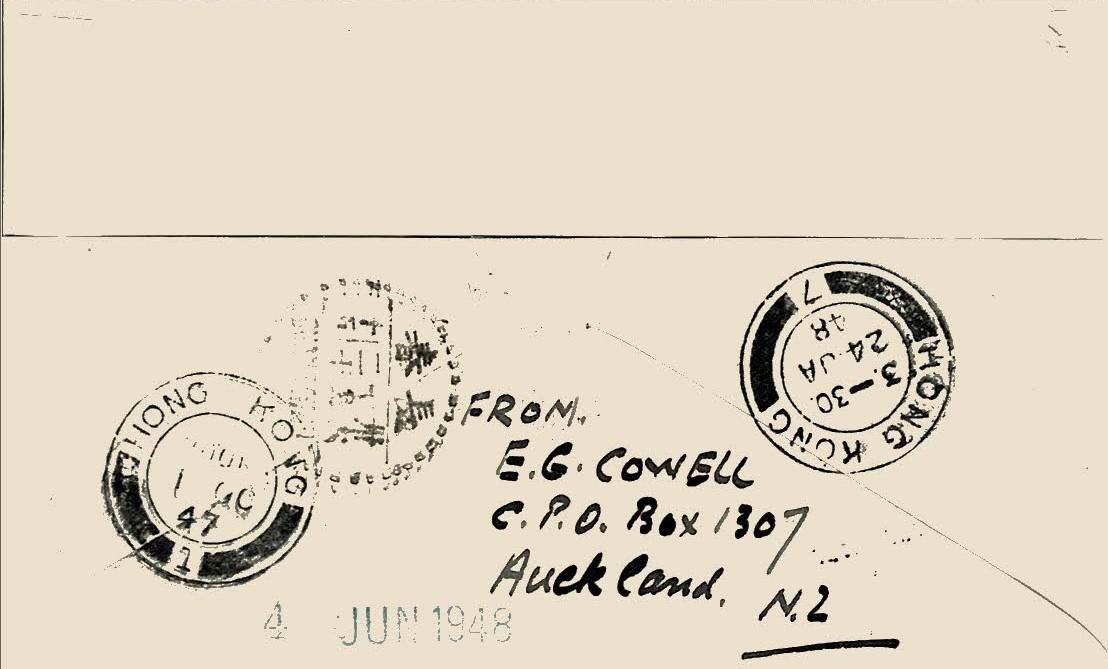 HONG KONG
7
3.—30.
24 JA
48
HONG KONG
1
47
1
FROM.
E.G. COWELL
C.P.O. Box 1307
Auckland.
N.Z
4 JUN 1948